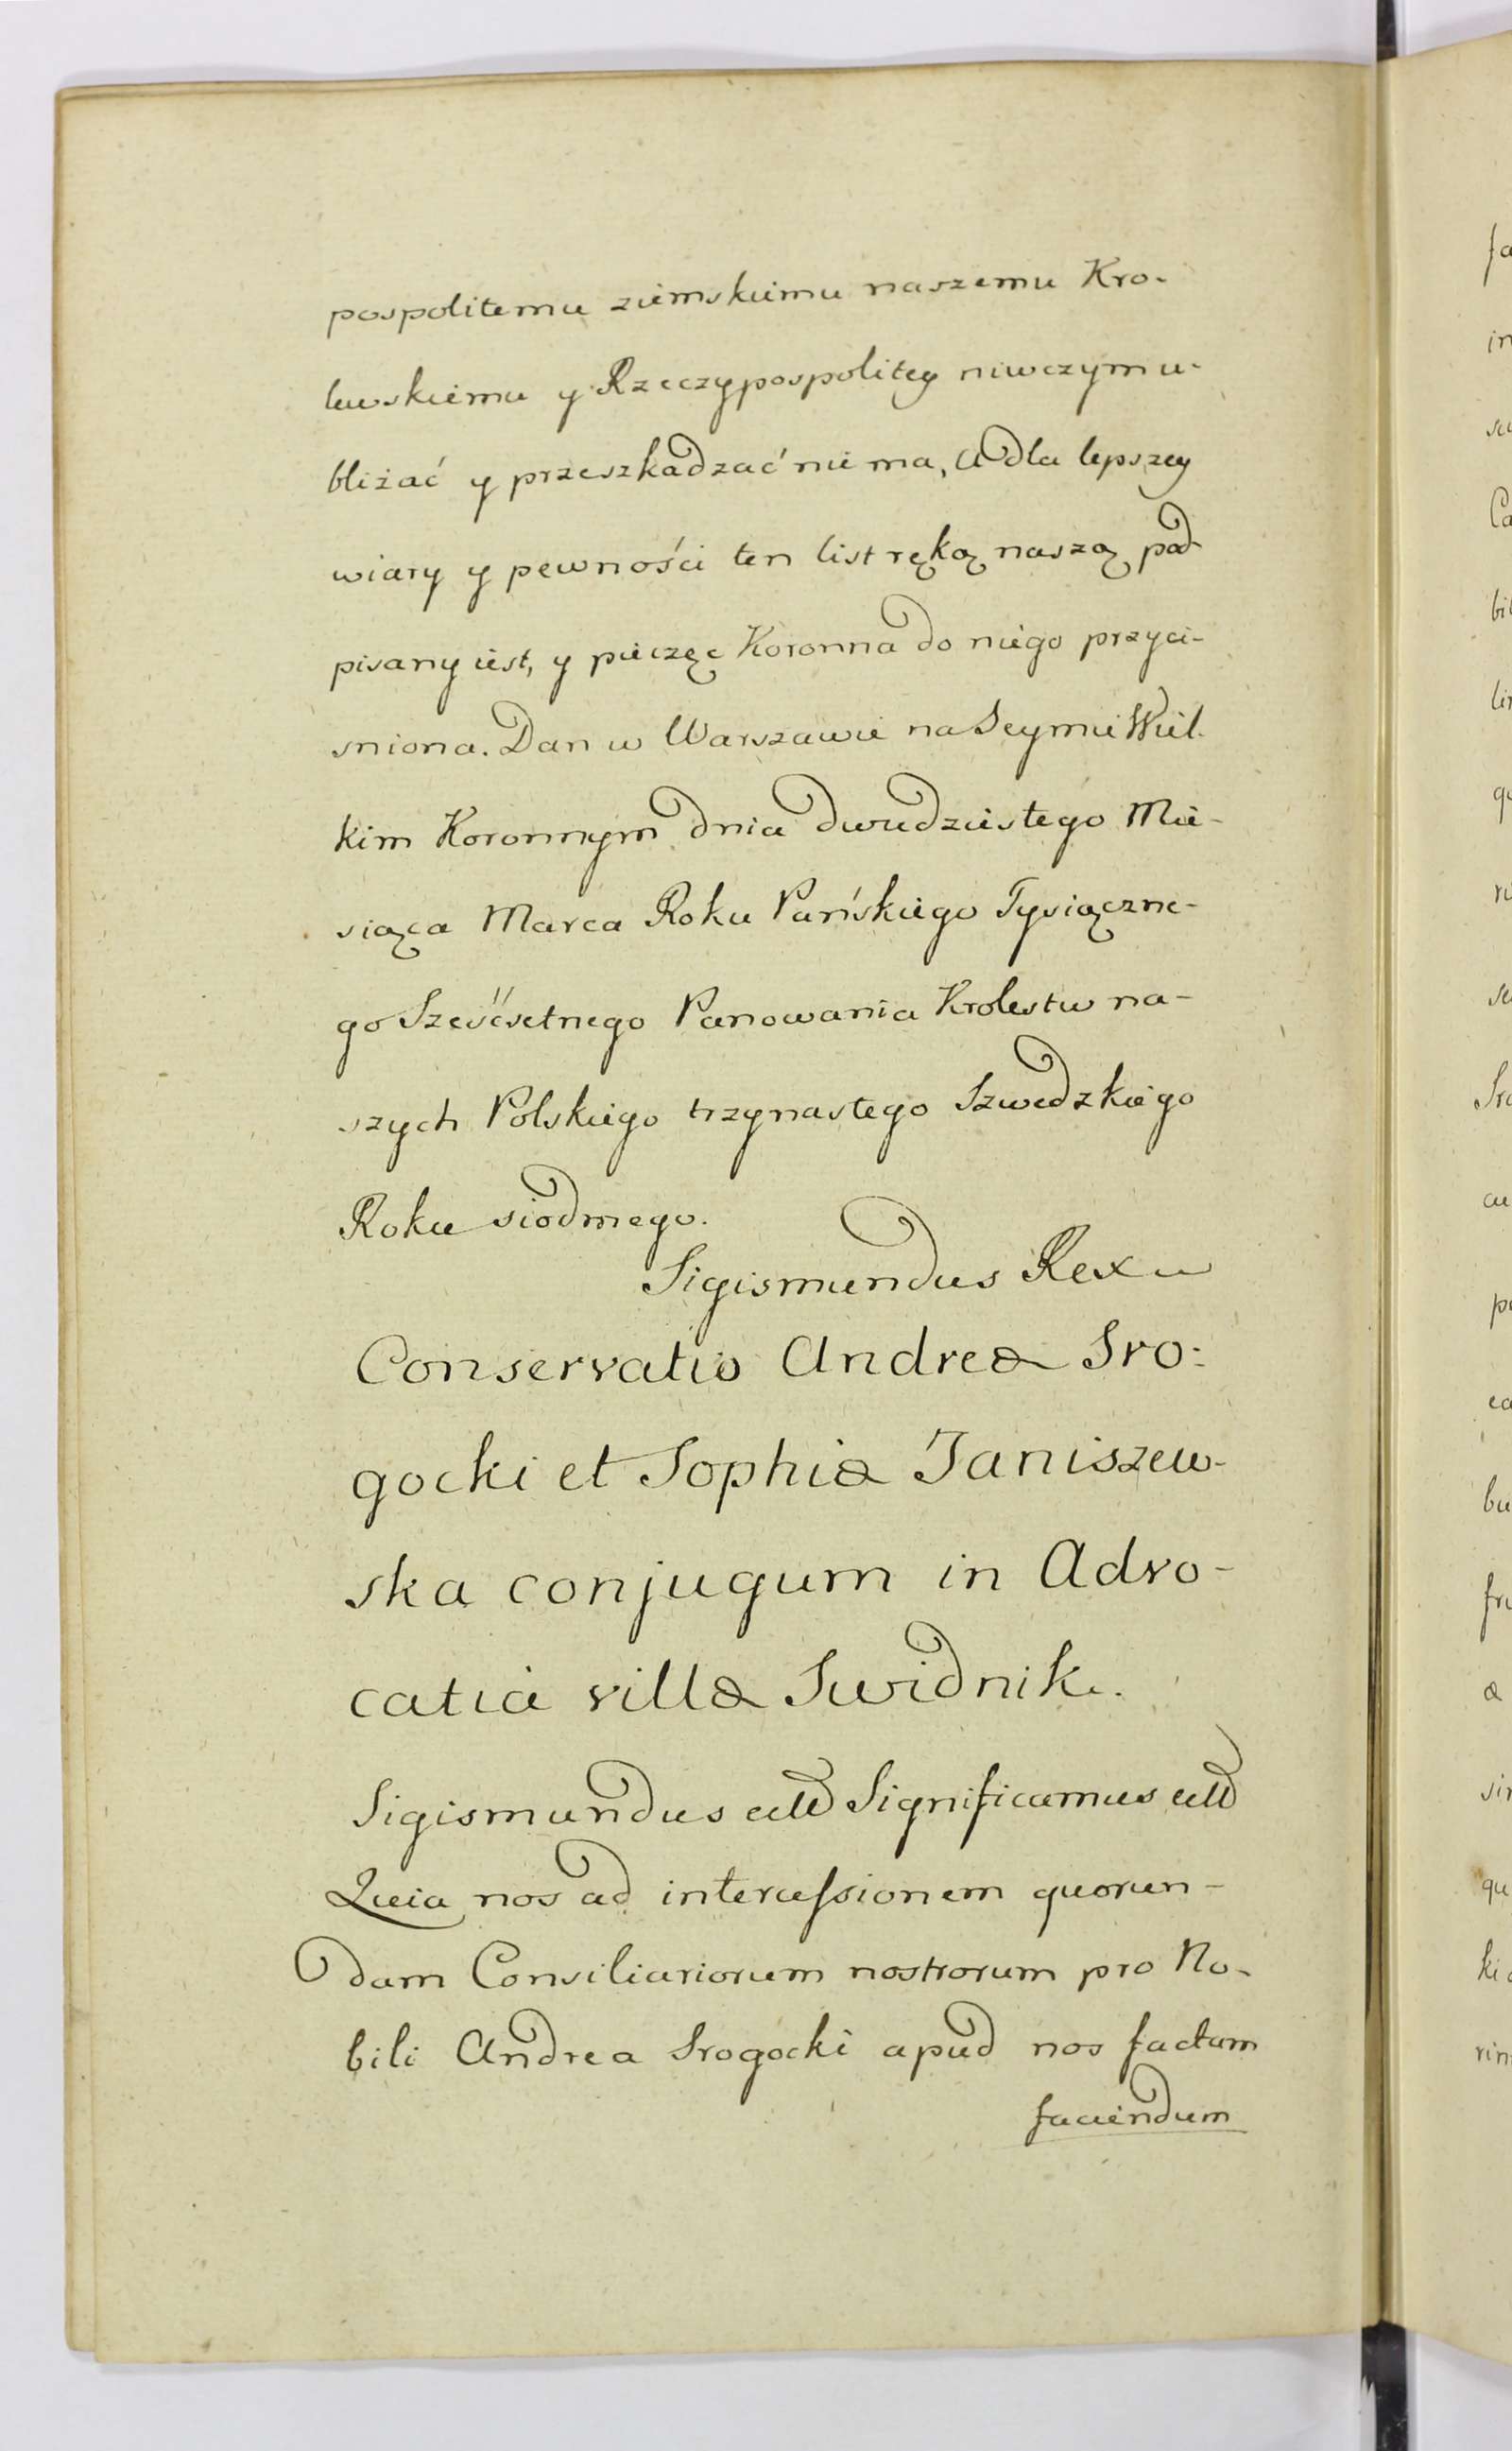 pospolitemu ziemskiemu naszemu Kro-
lewskiemu y Rzeczypospolitey niwczym u-
bliżać y przeszkadzać nie ma, A dla lepszey
wiary y pewności ten list ręką naszą pod-
pisany iest, y pieczęc Koronna do niego przyci-
sniona. Dan w Warszawie na Seymie Wiel-
kim Koronnym dnia dwudziestego Mie-
siąca Marca Roku Pańskiego Tysiączne-
go Sześćsetnego Panowania Krolestw na-
szych Polskiego trzynastego Szwedzkiego
Roku siodmego.
Sigismundus Rex
Conservatio Andreæ Sro:
gocki et Sophiæ Janiszew-
ska conjugum in Advo-
catia villæ Swidnik.
Sigismundus etc Significamus etc
Quia nos ad intercessionem quorun-
dam Consiliariorum nostrorum pro No-
bili Andrea Srogocki apud nos factam
faciendum